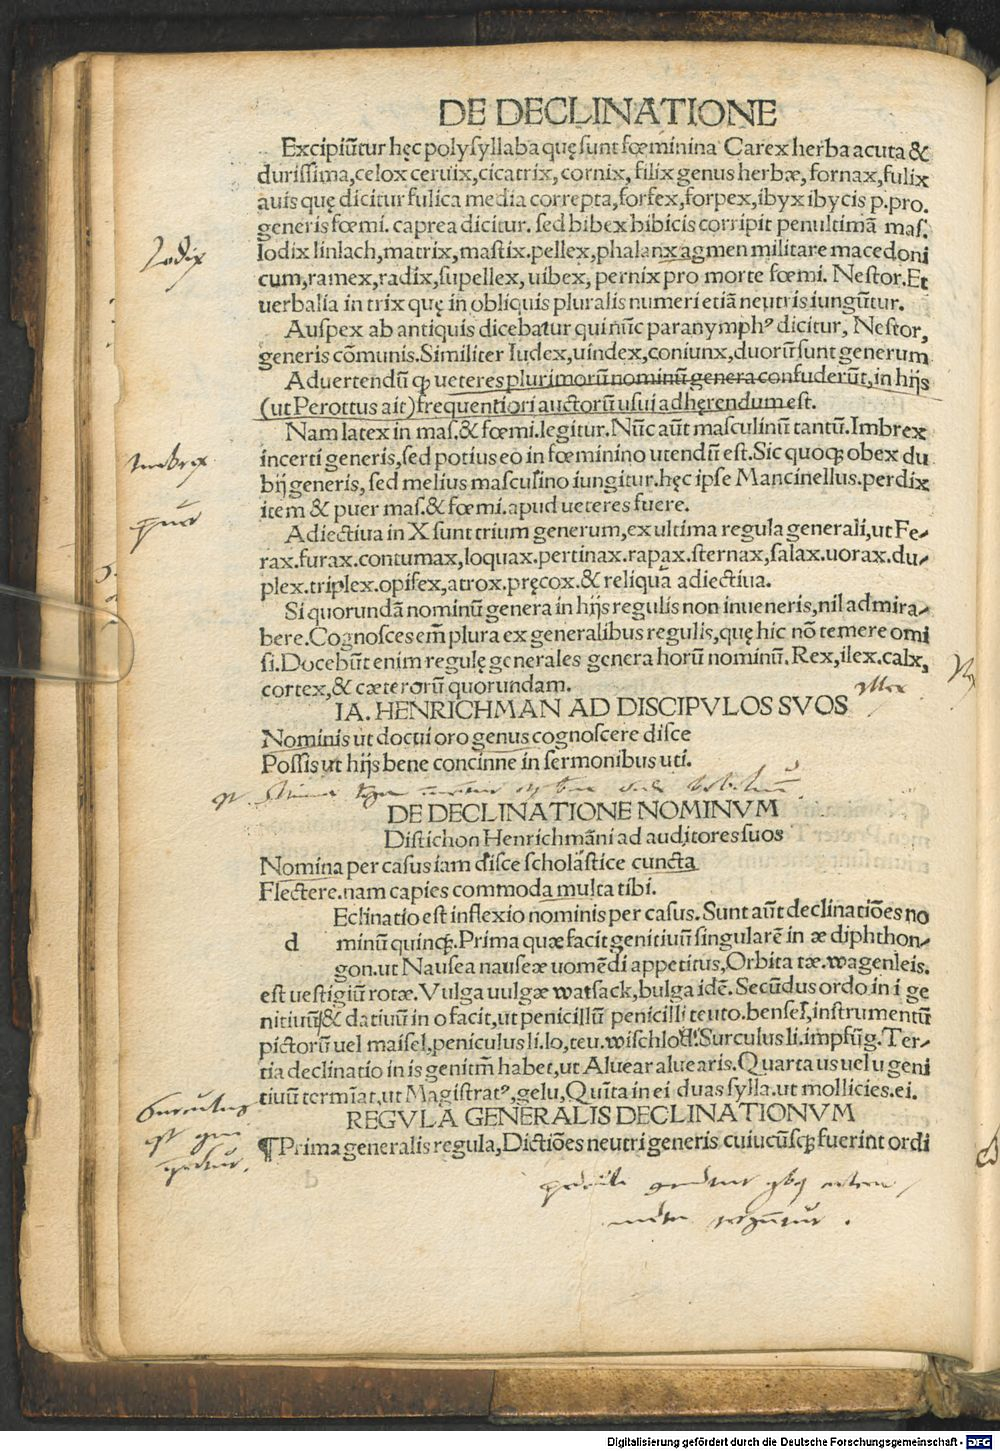 DE DECLINATIONE
Excipiũtur hęc polysyllaba quę sunt fœminina Carex herba acuta &
durissima,celox ceruix,cicatrix, cornix, filix genus herbæ, fornax, fulix
auis quę dicitur fulica media correpta, forfex, forpex, ibyx ibycis p.pro.
generis fœmi. caprea dicitur. sed bibex bibicis corripit penultimã mas.
lodix linlach,matrix, mastix.pellex,phalanx agmen militare macedoni
cum,ramex,radix,supellex, uibex, pernix pro morte fœmi. Nestor.Et
uerbalia in trix quę in obliquis pluralis numeri etiã neutris iungũtur.
Auspex ab antiquis dicebatur qui nũc paranymphꝰ dicitur, Nestor,
generis cõmunis.Similiter Iudex,uindex,coniunx,duorũ sunt generum
Aduertendũ ꝙ ueteres plurimorũ nominũ genera confuderũt,in hijs
(ut Perottus ait)frequentiori auctorũ usui adhęrendum est.
Nam latex in mas.& fœmi.legitur. Nũc aũt masculinũ tantũ.Imbrex
incerti generis,sed potius eo in fœminino utendũ est.Sic quoqꝫ obex du
bij generis, sed melius masculino iungitur.hęc ipse Mancinellus.perdix
item & puer mas.& fœmi.apud ueteres fuere.
Adiectiua in X sunt trium generum,ex ultima regula generali,ut Fe-
rax.furax.contumax,loquax.pertinax.rapax.sternax,salax.uorax.du-
plex.triplex.opifex,atrox.pręcox.& reliqua adiectiua.
Si quorundã nominũ genera in hijs regulis non inueneris,nil admira-
bere.Cognosces em̃ plura ex generalibus regulis,quę hic nõ temere omi
si.Docebũt enim regulę generales genera horũ nominũ. Rex,ilex.calx,
cortex,& cæterorũ quorundam.
IA. HENRICHMAN AD DISCIPVLOS SVOS
Nominis ut doctui oro genus cognoscere disce
Possis ut hijs bene concinne in sermonibus uti.
DE DECLINATIONE NOMINVM
Distichon Henrichmãni ad auditores suos
Nomina per casus iam disce scholastice cuncta
Flectere.nam capies commoda multa tibi.
Eclinatio est inflexio nominis per casus. Sunt aũt declinatiões no
d minũ quinqꝫ.Prima quæ facit genitiuũ singularẽ in æ diphthon-
gon.ut Nausea nauseæ uomẽdi appetitus,Orbita tæ.wagenleis.
est uestigiũ rotæ. Vulga uulgæ watsack,bulga idẽ. Secũdus ordo in i ge
nitiuũ,& datiuũ in o facit,ut penicillũ penicilli teuto.bensel,instrumentũ
pictorũ uel maisel,peniculus li.lo,teu.wischlod'.Surculus li.impfũg.Ter-
tia declinatio in is genitm̃ habet,ut Aluear aluearis.Quarta us uel u geni
tiuũ termĩat,ut Magistratꝰ,gelu,Quĩta in ei duas sylla.ut mollicies.ei.
REGVLA GENERALIS DECLINATIONVM
¶Prima generalis regula,Dictiões neutri generis cuiucũsqꝫ fuerint ordi
Lodix
Imbrex
puer
Ilex
Surculus
d
Digitalisierung gefördert durch die Deutsche Forschungsgemeinschaft - DFG